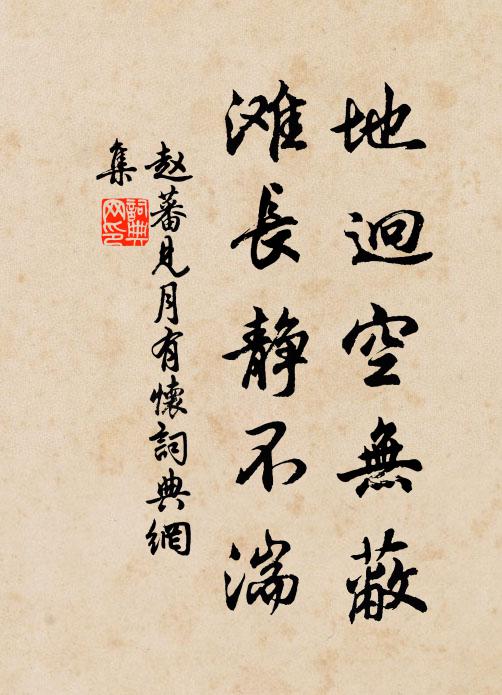 地迥空無蔽
滩長静不湍
赵蕃見月有懷詞典網
集
詞典网印